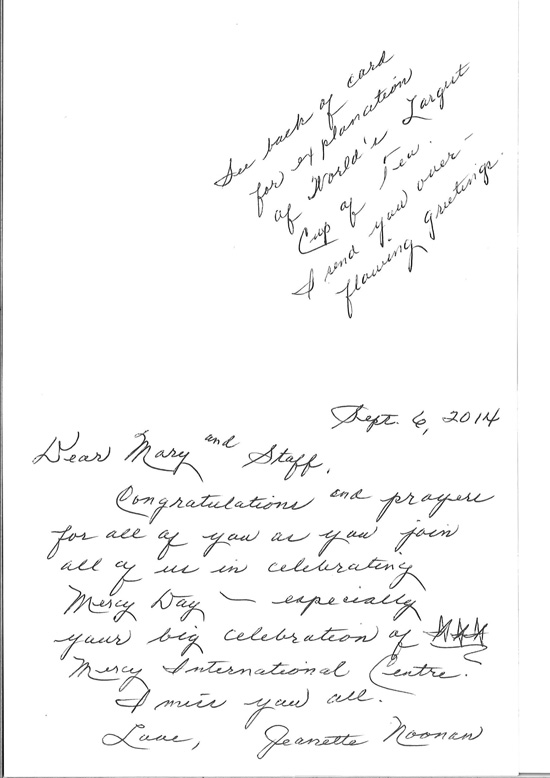 See back of card
for explanation
of World's Largest
Cup of Tea.
I send you over-
flowing greetings.
Sept. 6, 2014
Dear Mary and Staff,
Congratulations and prayers
for all of you as you join
all of us in celebrating
Mercy Day – especially
your big celebration of
Mercy International Centre.
I miss you all.
Love, Jeanette Noonan